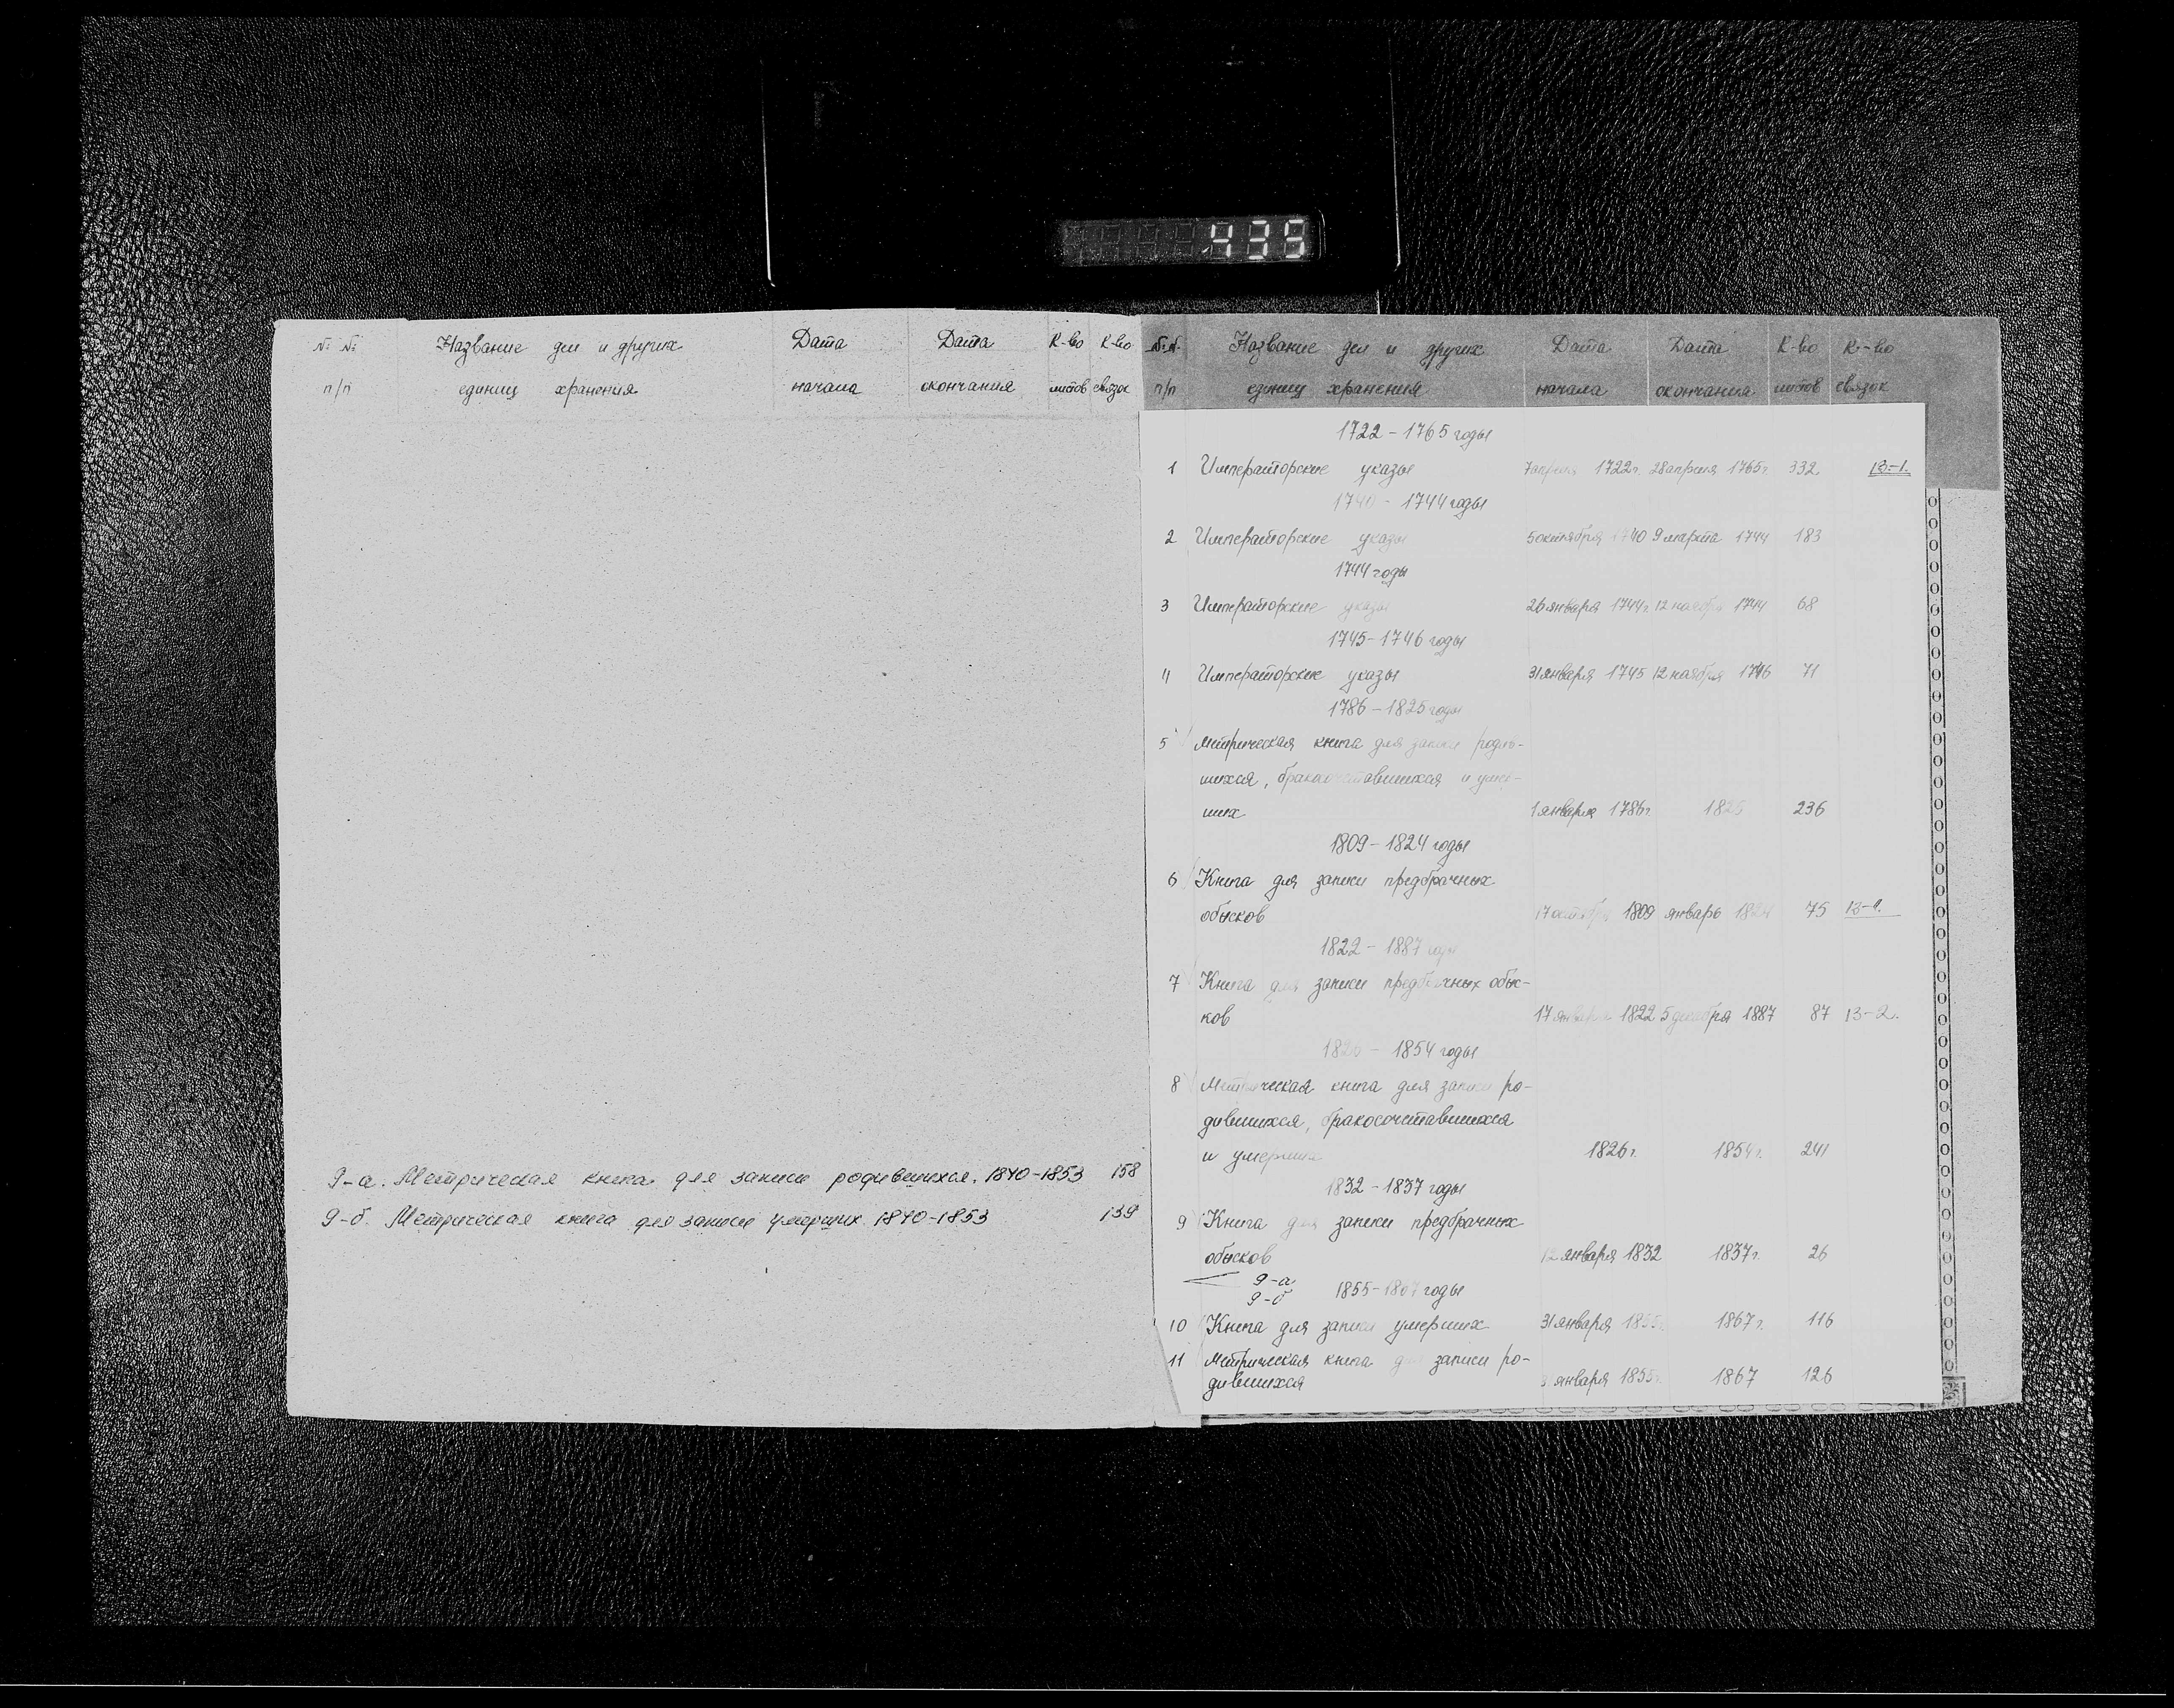 435
№ № Название дел и других Дата Дата К-во К-во
п/п единиц хранения начала окончания листов связок
9-а. Метрическая книга для записи родившихся. 1840-1853 158
9-б. Метрическая книга для записи умерших 1840-1853 139
№№ Название дел и других Дата Дата К-во К-во
п/п единиц хранения начала окончания листов связок
1722 - 1765 годы
1 Императорские указы 7 апреля 1722г. 28 апреля 1765г. 332
1740 - 1744 годы
2 Императорские указы 5 октября 1740 9 марта 1744 183
1744 годы
3 Императорские указы 26 января 1744г. 12 ноября 1744 68
1745-1746 годы
4 Императорские указы 31 января 1745 12 ноября 1746 71
1786 - 1825 годы
5 Метрическая книга для записи родив-
шихся, бракосочетавшихся и умер-
ших 1 января 1786г. 1825 236
1809 - 1824 годы
6 Книга для записи предбрачных
обысков 17 октября 1809 январь 1824 75
1822 - 1887 годы
7 Книга для записи предбрачных обыс-
ков 17 января 1822 5 декабря 1887 87
- 1854 годы
8 Метрическая книга для записи ро-
дившихся, бракосочетавшихся
и умерших 1826г. 1854г. 241
1832 - 1837 годы
9 Книга для записи предбрачных
обысков 12 января 1832 1837г. 26
9-а
9-б 1855-1867 годы
10 Книга для записи умерших 31 января 1855г. 1867г. 116
11 Метрическая книга для записи ро-
дившихся января 1855г. 1867 126